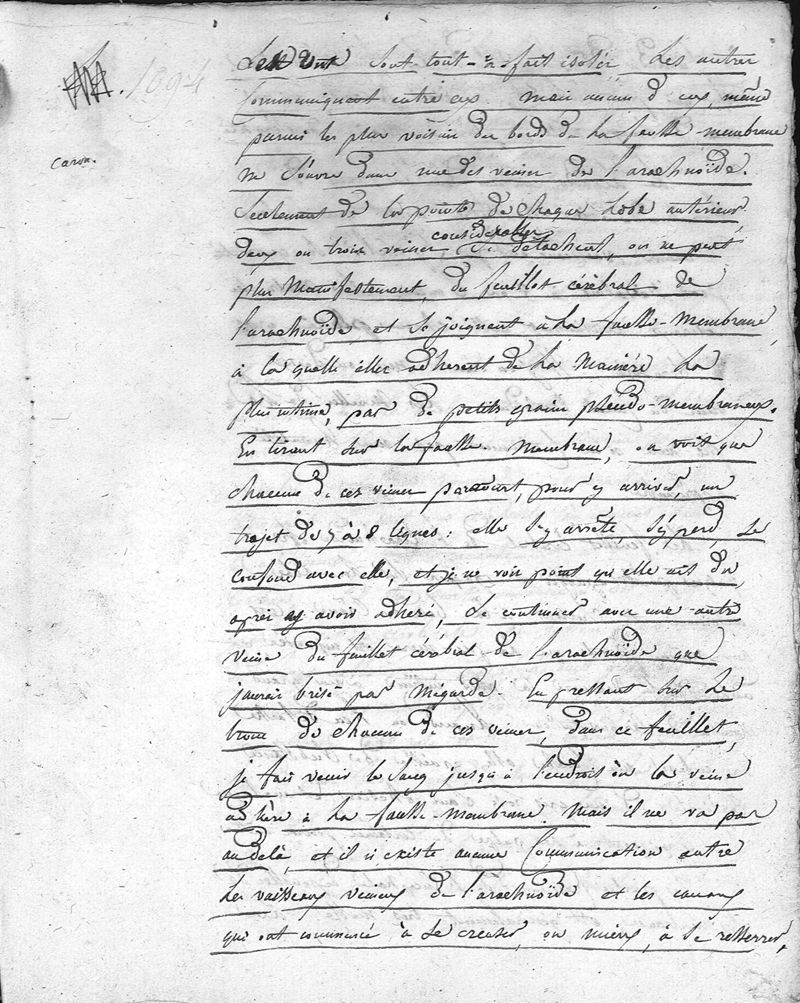 1094
Caron.
Les uns sont tout-à-fait isolés, les autres
Communiquent entre eux. mais aucun d'eux, même
parmi les plus voisins des bords de la fausse-membrane
ne s'ouvre dans une des veines de l'arachnoïde.
Seulement de la pointe de chaque lobe antérieur
deux ou trois veines considérables se détachent, on ne peut
plus manifestement, du feuillet cérébral de
l'arachnoïde, et se joignent à la fausse-membrane,
à la quelle elles adhèrent de la manière la
plus intime, par de petits grains pseudo-membraneux.
En tirant sur la fausse-membrane, on voit que
chacune de ces veines parcourt, pour y arriver, un
trajet de 7 à 8 lignes: elle s'y arrête, s'y perd, se
confond avec elle, et je ne vois point qu'elle ait dû,
après y avoir adhéré, se continuer avec une autre
veine du feuillet cérébral de l'arachnoïde que
j'aurais brisé par mégarde. En pressant sur le
tronc de chacune de ces veines, dans ce feuillet,
je fais venir le sang jusqu'à l'endroit où la veine
adhère à la fausse-membrane. Mais il ne va pas
au delà, et il n'existe aucune Communication entre
les vaisseaux veineux de l'arachnoïde et les canaux
qui ont commencé à se creuser, ou mieux, à se resserrer,